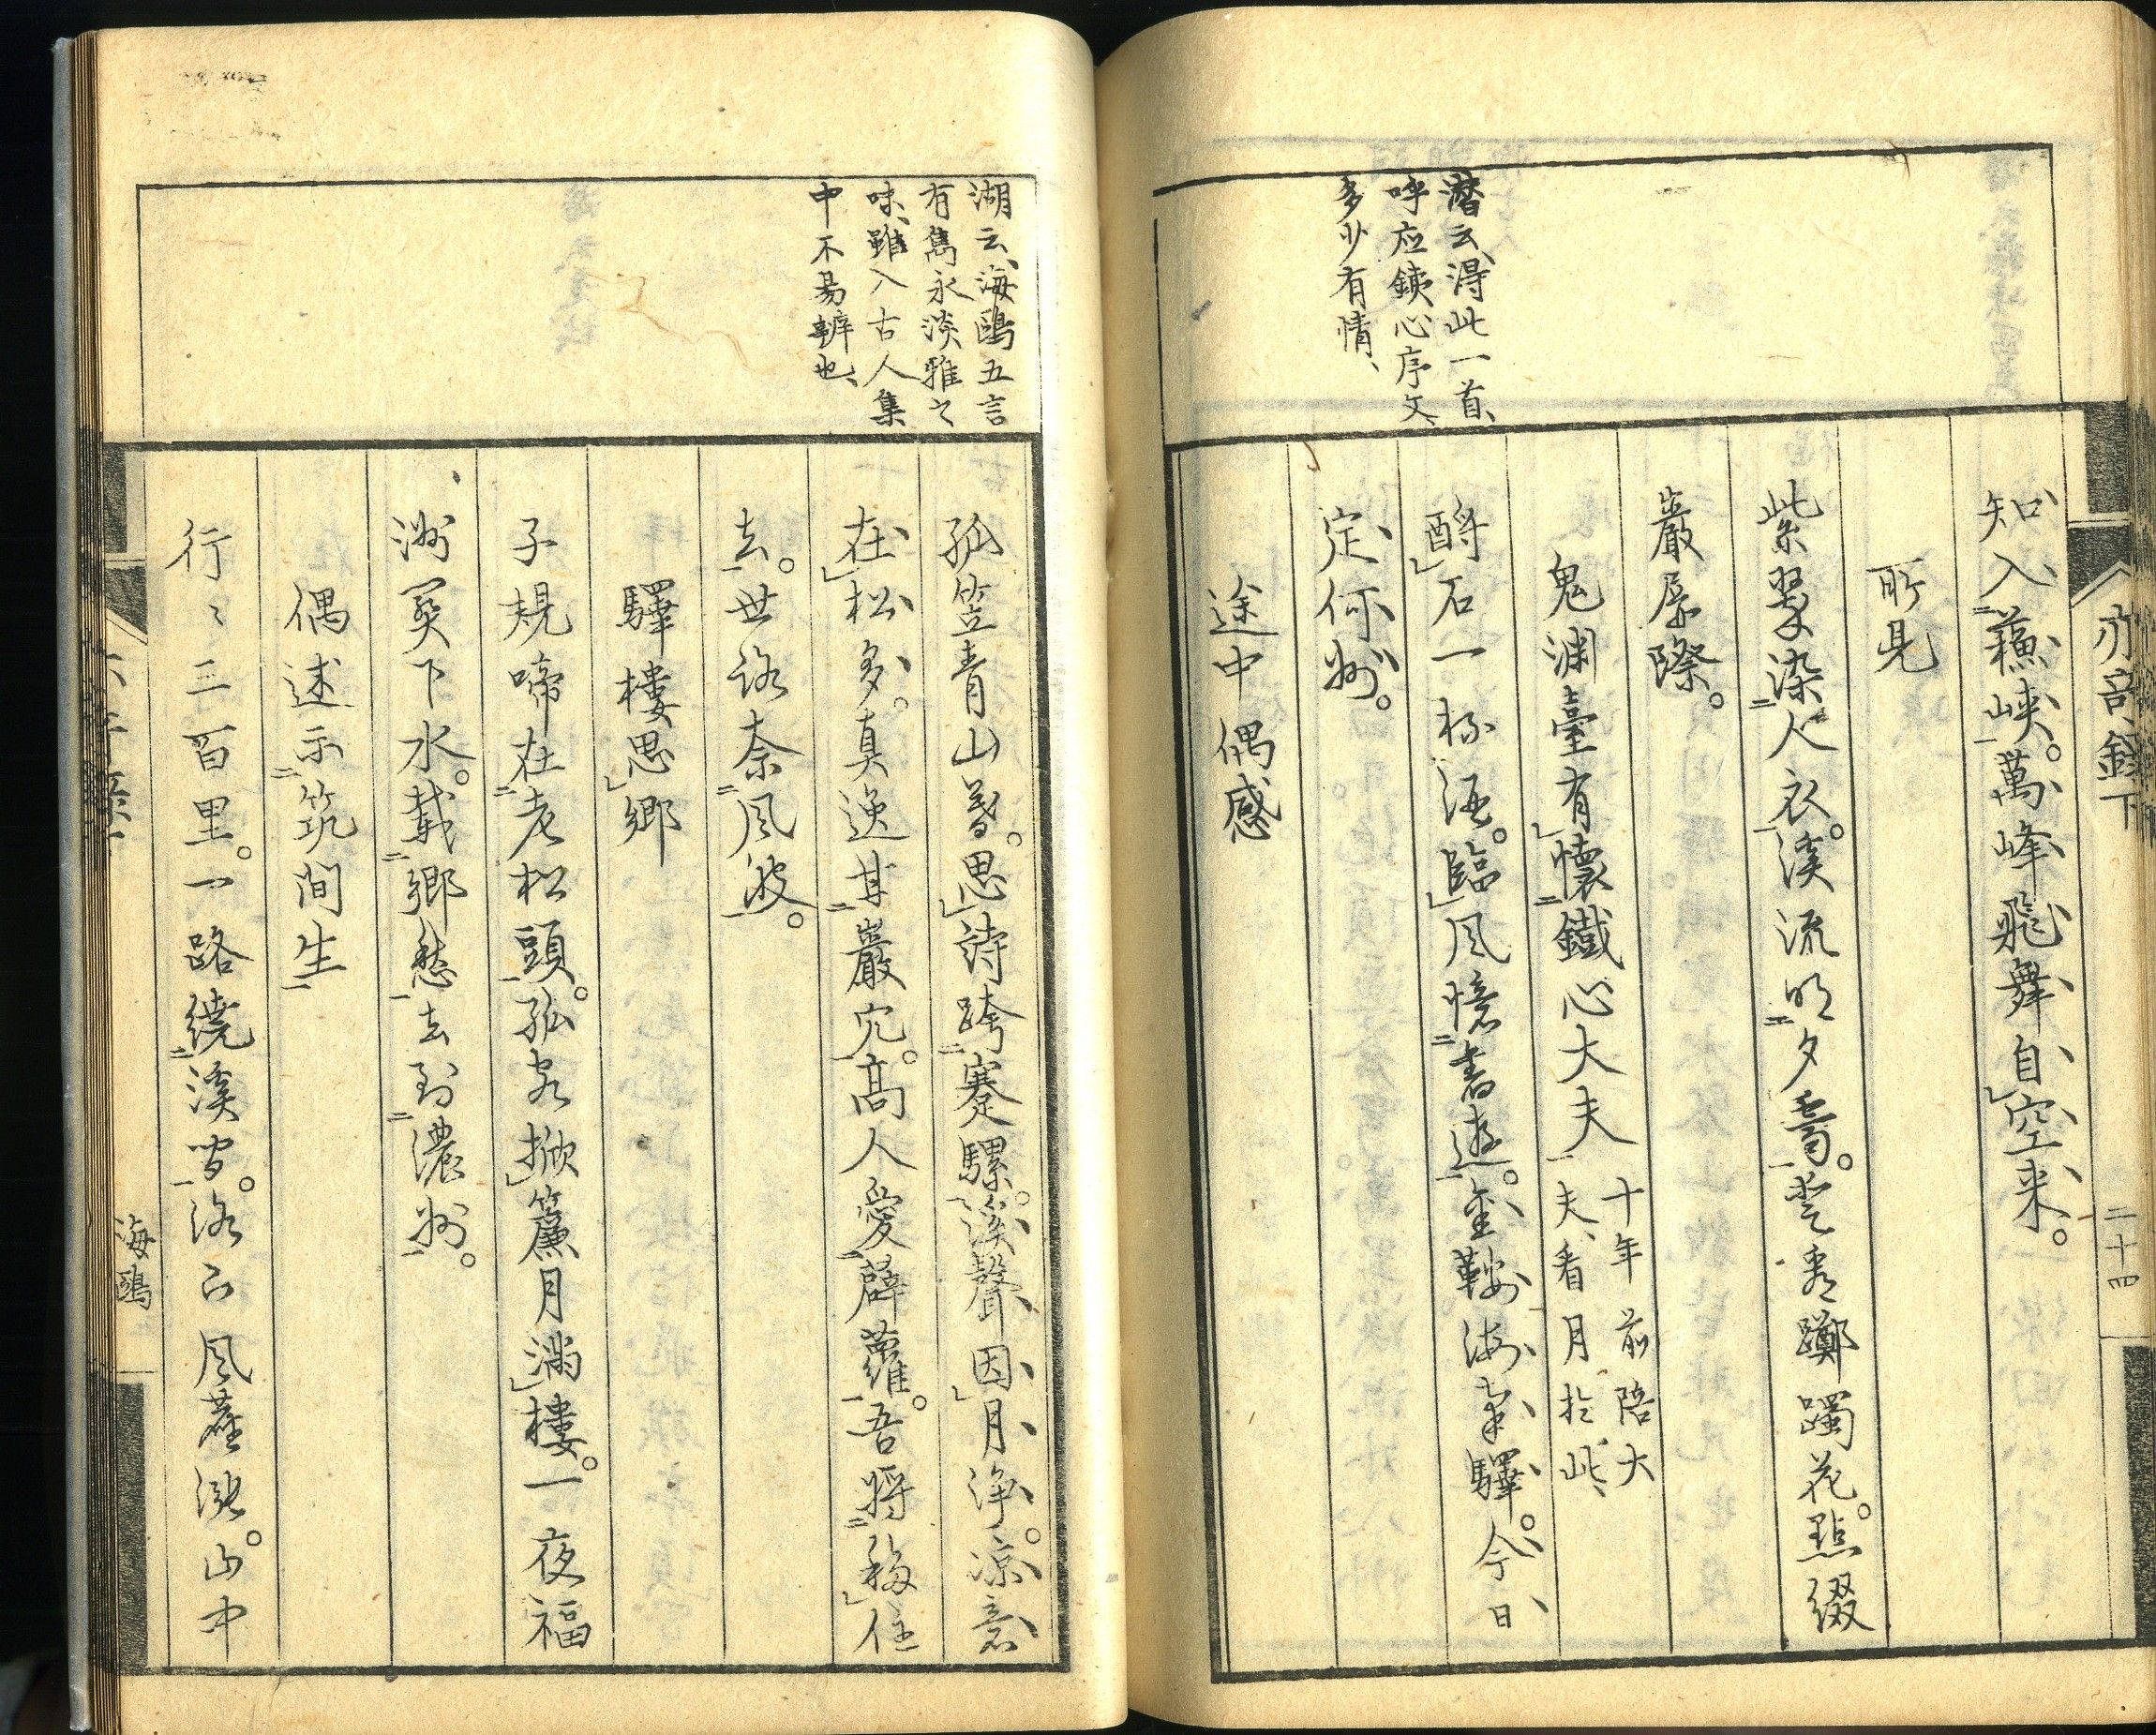 潜云、得此一首、
呼应鉄心序文
多少有情、
知入蘓峡。萬峰飛舞自空来。
所見
紫翠染人衣。溪流明夕霽。点綴
巖扉際。
鬼渊臺有懷鐵心大夫
十年前陪大
夫、看月於此、
酹石一杯酒。臨風憶書遊。金鞍何處驛。今日
定何州。
途中偶感
二十四
湖云、海鷗五言
有雋永淡雅之
味、雖入古人集
中不易辨也、
孤笠青山暮。思詩跨蹇騾。溪聲因月浄。凉意
在松多。真逸甘巖穴。高人愛薜蘿。吾将移住
去。世路奈風波。
驛樓思郷
子規啼在老松頭。孤客掀簾月満樓。一夜福
洲関下水。載郷愁去到濃州。
偶述示筑間生
行々三百里。一路繞溪雲。洛下風塵漲。山中
海鷗